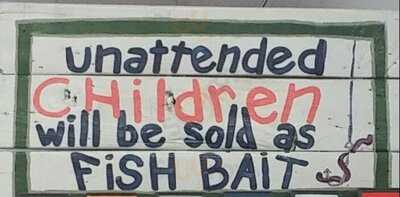 unattended
CHildren
will be sold as
FiSH BAiT